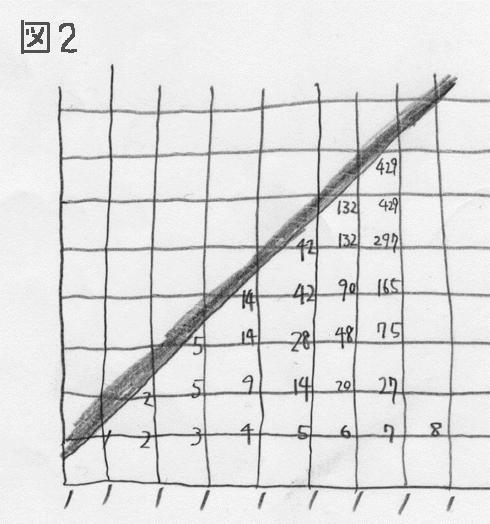 図2
429
132 429
42 132 297
14 42 90 165
5 14 28 48 75
2 5 9 14 20 27
1 2 3 4 5 6 7 8
1 1 1 1 1 1 1 1 1